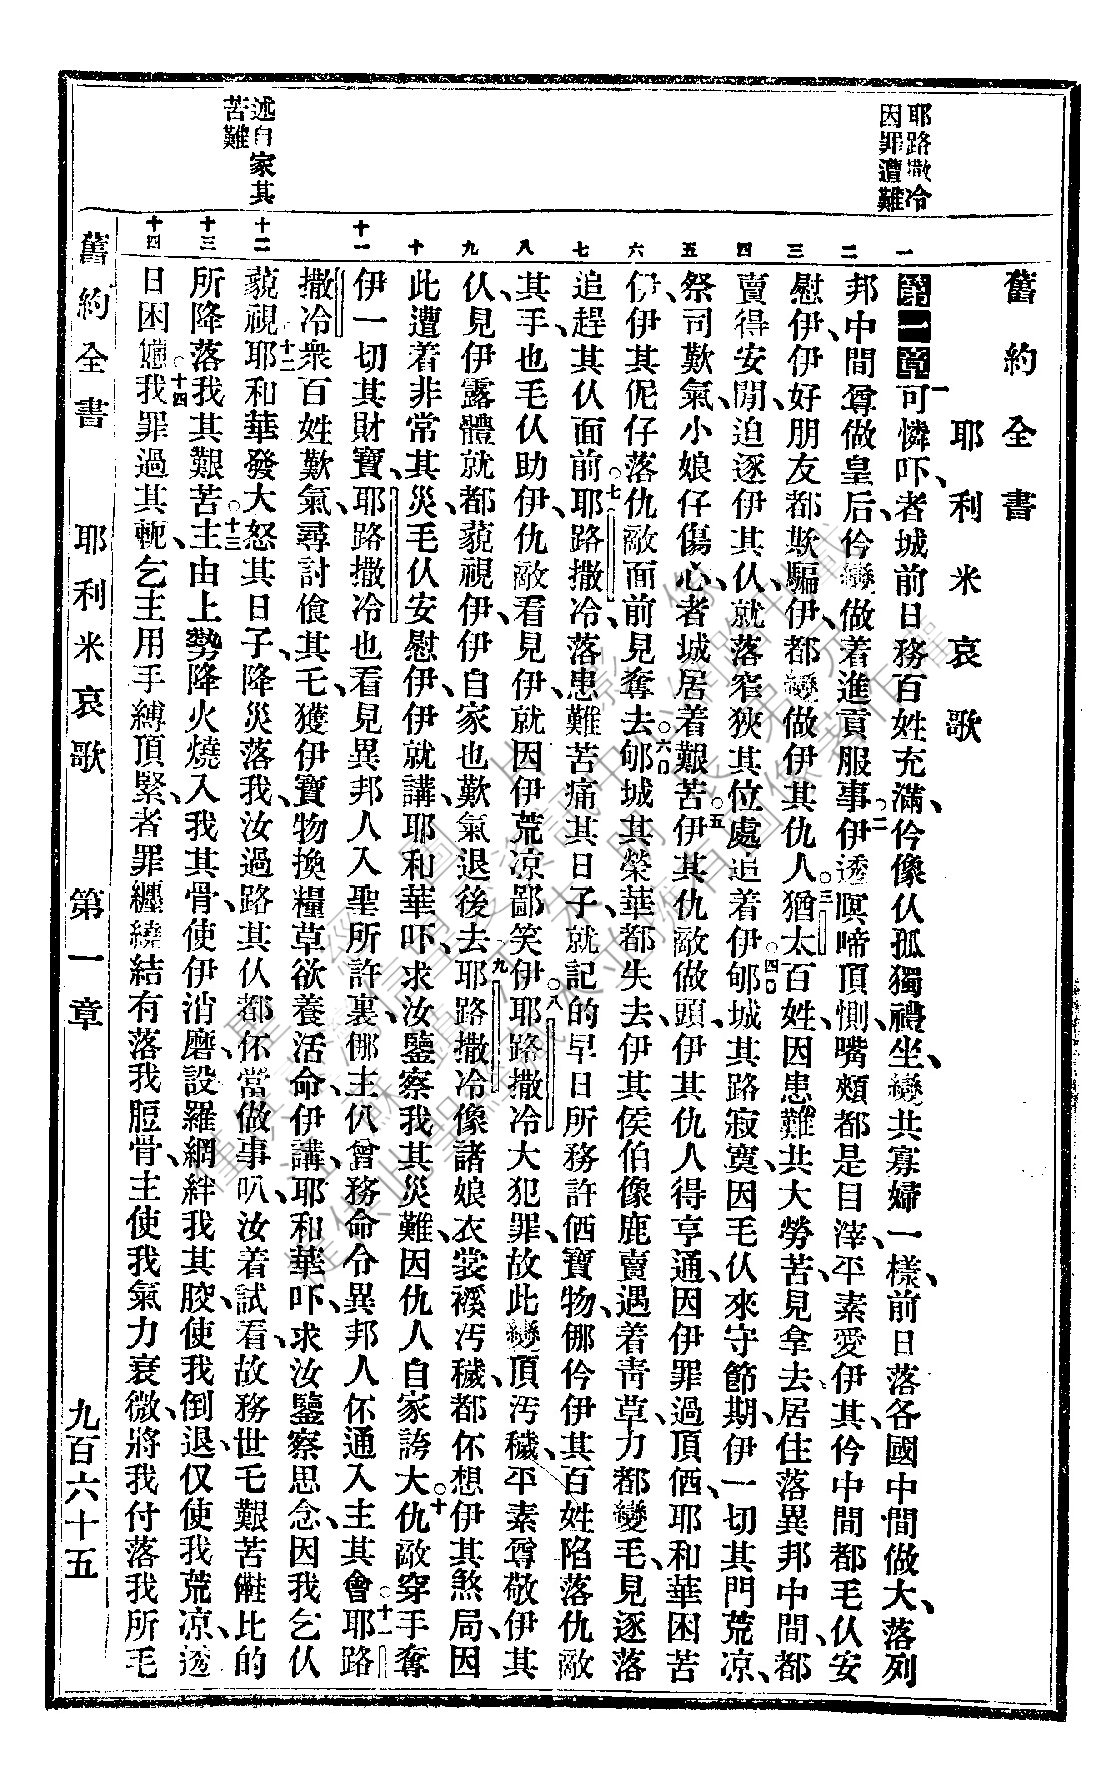 耶路撒冷
因罪遭難
述自家其
苦難
一 二 三 四 五 六 七 八 九 十 十一 十二 十三 十四
舊約全書
耶利米哀歌
第一章 一可憐吓、者城前日務百姓充滿、仱像仈孤獨禮坐、變共寡婦一樣、前日落各國中間做大、落列
邦中間尊做皇后、仱變做着進貢服事。二伊透暝啼頂惻、嘴頰都是目滓、平素愛伊其、仱中間都毛仈安
慰伊、伊好朋友都欺騙伊、都變做伊其仇人。三猶太百姓、因患難共大勞苦、見拿去居住落異邦中間、都
賣得安閒、迫逐伊其仈、就落窄狹其位處追着伊。四郇城其路寂寞、因毛仈來守節期、伊一切其門荒凉、
祭司歎氣、小娘仔傷心、者城居着艱苦。五伊其仇敵做頭、伊其仇人得亨通、因伊罪過頂価、耶和華困苦
伊、伊其伲仔落仇敵面前見奪去。六郇城其榮華都失去、伊其侯伯像鹿賣遇着靑草、力都變毛、見逐落
追趕其仈面前。七耶路撒冷、落患難苦痛其日子、就記的早日所務許価寶物、倻仱伊其百姓陷落仇敵
其手、也毛仈助伊、仇敵看見伊、就因伊荒凉鄙笑伊。八耶路撒冷大犯罪、故此變頂汚穢、平素尊敬伊其
仈、見伊露體就都藐視伊、伊自家也歎氣退後去。九耶路撒冷像諸娘衣裳襱汚穢、都伓想伊其煞局、因
此遭着非常其災、毛仈安慰伊、伊就講、耶和華吓、求汝鑒察我其災難、因仇人自家誇大。十仇敵穿手奪
伊一切其財寶、耶路撒冷也看見異邦人入聖所許裏、倻主仈曾務命令異邦人伓通入主其會。十一耶路
撒冷衆百姓歎氣、尋討飧其、乇獲伊寶物換糧草欲養活命、伊講、耶和華吓、求汝鑒察思念、因我乞仈
藐視。十二耶和華發大怒其日子、降災落我、汝過路其仈都伓當做事叭、汝着試看、故務世毛艱苦𠆧比的
所降落我其艱苦。十三主由上勢降火燒入我其骨、使伊消磨、設羅網絆我其胶、使我倒退、仅使我荒凉、透
日困憊。十四我罪過其軛、乞主用手縛頂緊、者罪纏繞結有落我脰骨、主使我氣力衰微、將我付落我所毛
舊約全書 耶利米哀歌 第一章 九百六十五